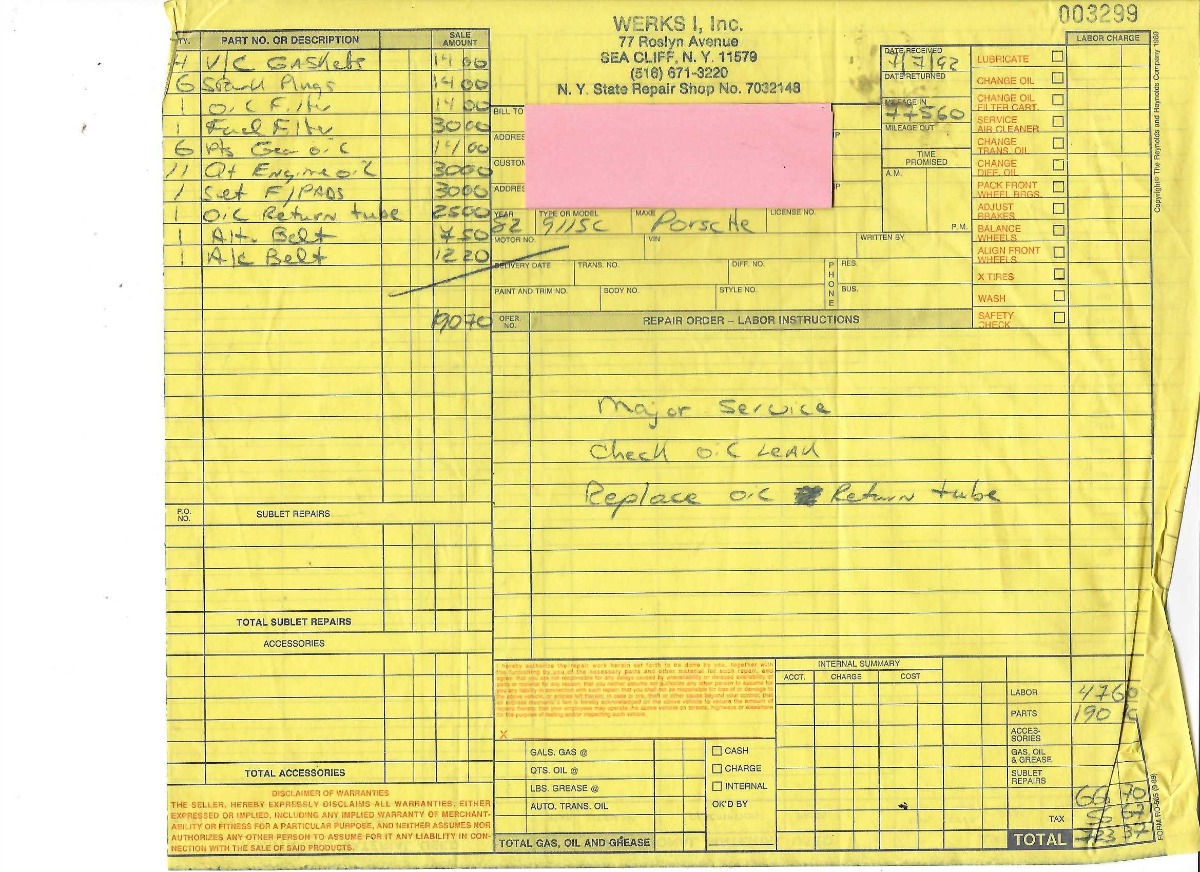 003299
WERKS I, Inc.
77 Roslyn Avenue
SEA CLIFF, N. Y. 11579
(516) 671-3220
N. Y. State Repair Shop No. 7032148
TY. PART NO. OR DESCRIPTION SALE AMOUNT
4 V/C Gaskets 14 00
6 Spark Plugs 14 00
1 Oil Filter 14 00
1 Fuel Filter 30 00
6 Pts Gear oil 14 00
11 Qt Engine oil 30 00
1 Set F/PADS 30 00
1 Oil Return tube 25 00
1 Alt. Belt 7 50
1 A/C Belt 12 20
190 70
P.O. NO. SUBLET REPAIRS
TOTAL SUBLET REPAIRS
ACCESSORIES
TOTAL ACCESSORIES
DISCLAIMER OF WARRANTIES
THE SELLER, HEREBY EXPRESSLY DISCLAIMS ALL WARRANTIES, EITHER
EXPRESSED OR IMPLIED, INCLUDING ANY IMPLIED WARRANTY OF MERCHANT-
ABILITY OR FITNESS FOR A PARTICULAR PURPOSE, AND NEITHER ASSUMES NOR
AUTHORIZES ANY OTHER PERSON TO ASSUME FOR IT ANY LIABILITY IN CON-
NECTION WITH THE SALE OF SAID PRODUCTS.
BILL TO
ADDRES
CUSTOM
ADDRES
YEAR 82 TYPE OR MODEL 911SC MAKE Porsche LICENSE NO.
MOTOR NO. VIN WRITTEN BY
DELIVERY DATE TRANS. NO. DIFF. NO. PHONE RES.
PAINT AND TRIM NO. BODY NO. STYLE NO. BUS.
DATE RECEIVED
7/7/92
DATE RETURNED
MILEAGE IN
77560
MILEAGE OUT
TIME PROMISED
A.M.
P.M.
LABOR CHARGE
LUBRICATE
CHANGE OIL
CHANGE OIL FILTER CART.
SERVICE AIR CLEANER
CHANGE TRANS. OIL
CHANGE DIFF. OIL
PACK FRONT WHEEL BRGS.
ADJUST BRAKES
BALANCE WHEELS
ALIGN FRONT WHEELS
X TIRES
WASH
SAFETY CHECK
OPER. NO. REPAIR ORDER – LABOR INSTRUCTIONS
Major Service
Check oil Leak
Replace oil Return tube
X
GALS. GAS @
QTS. OIL @
LBS. GREASE @
AUTO. TRANS. OIL
TOTAL GAS, OIL AND GREASE
CASH
CHARGE
INTERNAL
OK'D BY
INTERNAL SUMMARY
ACCT. CHARGE COST
LABOR 476
PARTS 190
ACCES-SORIES
GAS, OIL & GREASE
SUBLET REPAIRS
TAX
TOTAL 723 37
Copyright© The Reynolds and Reynolds Company 1989